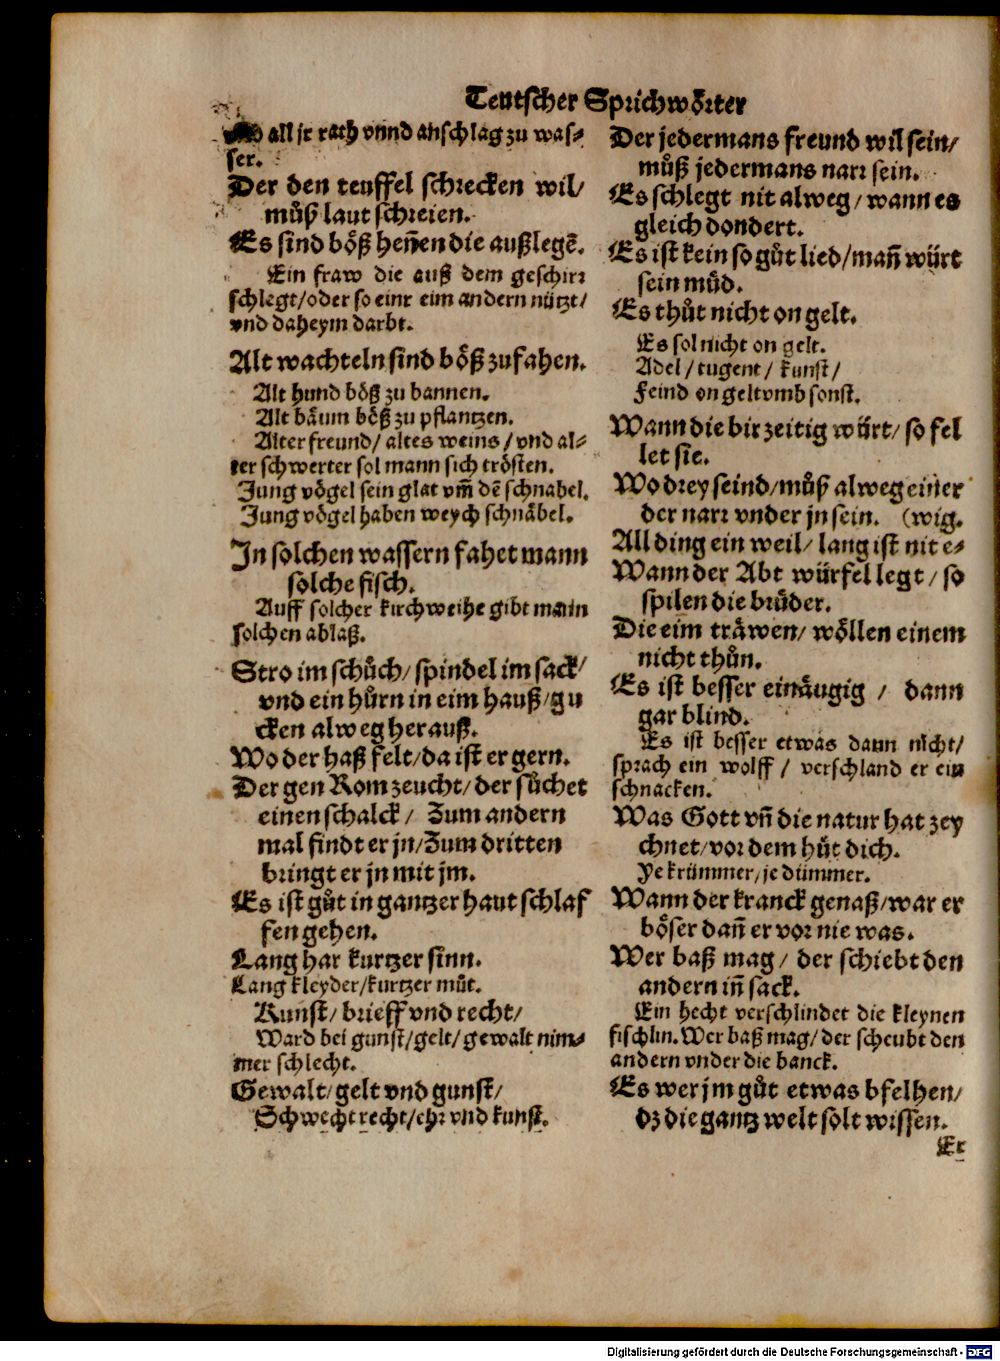 Teutscher Sprichwörter
all jr rath vnnd anschlag zu was⸗
ser.
Der den teuffel schrecken wil/
můß laut schreien.
Es sind böß hen̄en die außlegē.
Ein fraw die auß dem geschirr
schlegt/oder so einr eim andern nützt/
vnd daheym darbt.
Alt wachteln sind böß zufahen.
Alt hund böß zu bannen.
Alt bäum böß zu pflantzen.
Alter freund/ altes weins/ vnd al⸗
ter schwerter sol mann sich trösten.
Jung vögel sein glat vm̄ dē schnabel.
Jung vögel haben weych schnäbel.
In solchen wassern fahet mann
solche fisch.
Auff solcher kirchweihe gibt mann
solchen ablaß.
Stro im schůch/ spindel im sack/
vnd ein hůrn in eim hauß/gu
cken alweg herauß.
Wo der haß felt/da ist er gern.
Der gen Rom zeucht/ der sůchet
einen schalck/ Zum andern
mal findt er jn/Zum dritten
bringt er jn mit jm.
Es ist gůt in gantzer haut schlaf
fen gehen.
Lang har kurtzer sinn.
Lang kleyder/kurtzer můt.
Kunst/ brieff vnd recht/
Ward bei gunst/gelt/ gewalt nim⸗
mer schlecht.
Gewalt/ gelt vnd gunst/
Schwecht recht/ehr vnd kunst.
Der jedermans freund wil sein/
můß jedermans narr sein.
Es schlegt nit alweg/ wann es
gleich dondert.
Es ist kein so gůt lied/man̄ würt
sein můd.
Es thůt nicht on gelt.
Es sol nicht on gelt.
Adel/ tugent/ kunst/
Seind on gelt vmb sonst.
Wann die bir zeitig würt/ so fel
let sie.
Wo drey seind/můß alweg einer
der narr vnder jn sein. (wig.
All ding ein weil/ lang ist nit e⸗
Wann der Abt würfel legt/ so
spilen die brůder.
Die eim träwen/ wöllen einem
nicht thůn.
Es ist besser einäugig / dann
gar blind.
Es ist besser etwas dann nicht/
sprach ein wolff/ verschland er ein
schnacken.
Was Gott vn̄ die natur hat zey
chnet/vor dem hůt dich.
Ye krümmer/je dümmer.
Wann der kranck genaß/war er
böser dan̄ er vor nie was.
Wer baß mag/ der schiebt den
andern in̄ sack.
Ein hecht verschlindet die kleynen
fischlin. Wer baß mag/ der scheubt den
andern vnder die banck.
Es wer jm gůt etwas bfelhen/
dz die gantz welt solt wissen.
Er
Digitalisierung gefördert durch die Deutsche Forschungsgemeinschaft - DFG